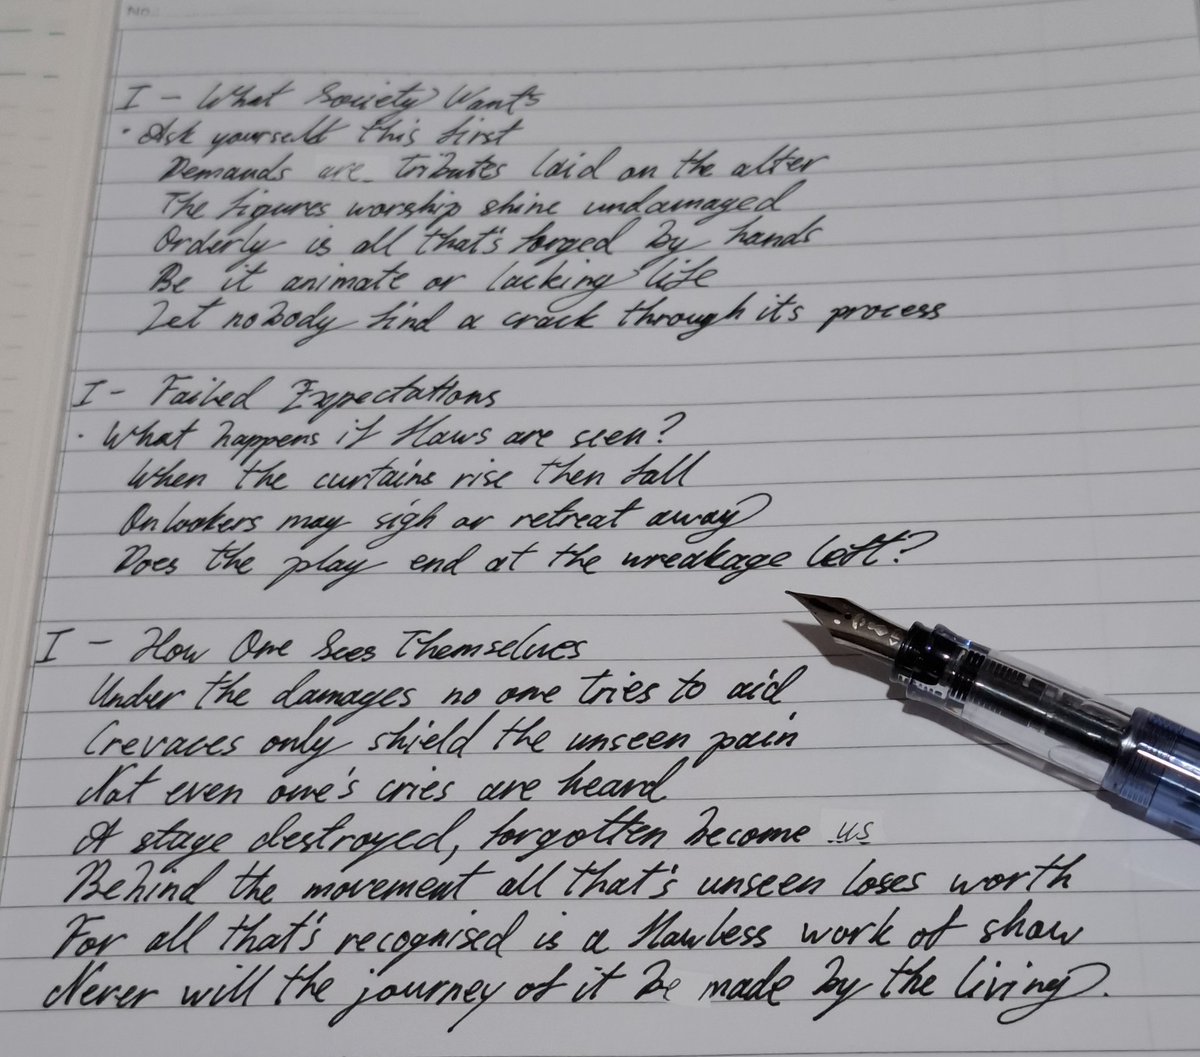 No.
I - What Society Wants
· Ask yourself this first
Demands are tributes laid on the alter
The figures worship shine undamaged
Orderly is all that's forged by hands
Be it animate or lacking life
Let nobody find a crack through its process
I - Failed Expectations
· What happens if flaws are seen?
When the curtains rise then fall
Onlookers may sigh or retreat away
Does the play end at the wreakage left?
I - How One Sees Themselves
Under the damages no one tries to aid
Crevaces only shield the unseen pain
Not even one's cries are heard
A stage destroyed, forgotten become us
Behind the movement all that's unseen loses worth
For all that's recognised is a flawless work of show
Never will the journey of it be made by the living.